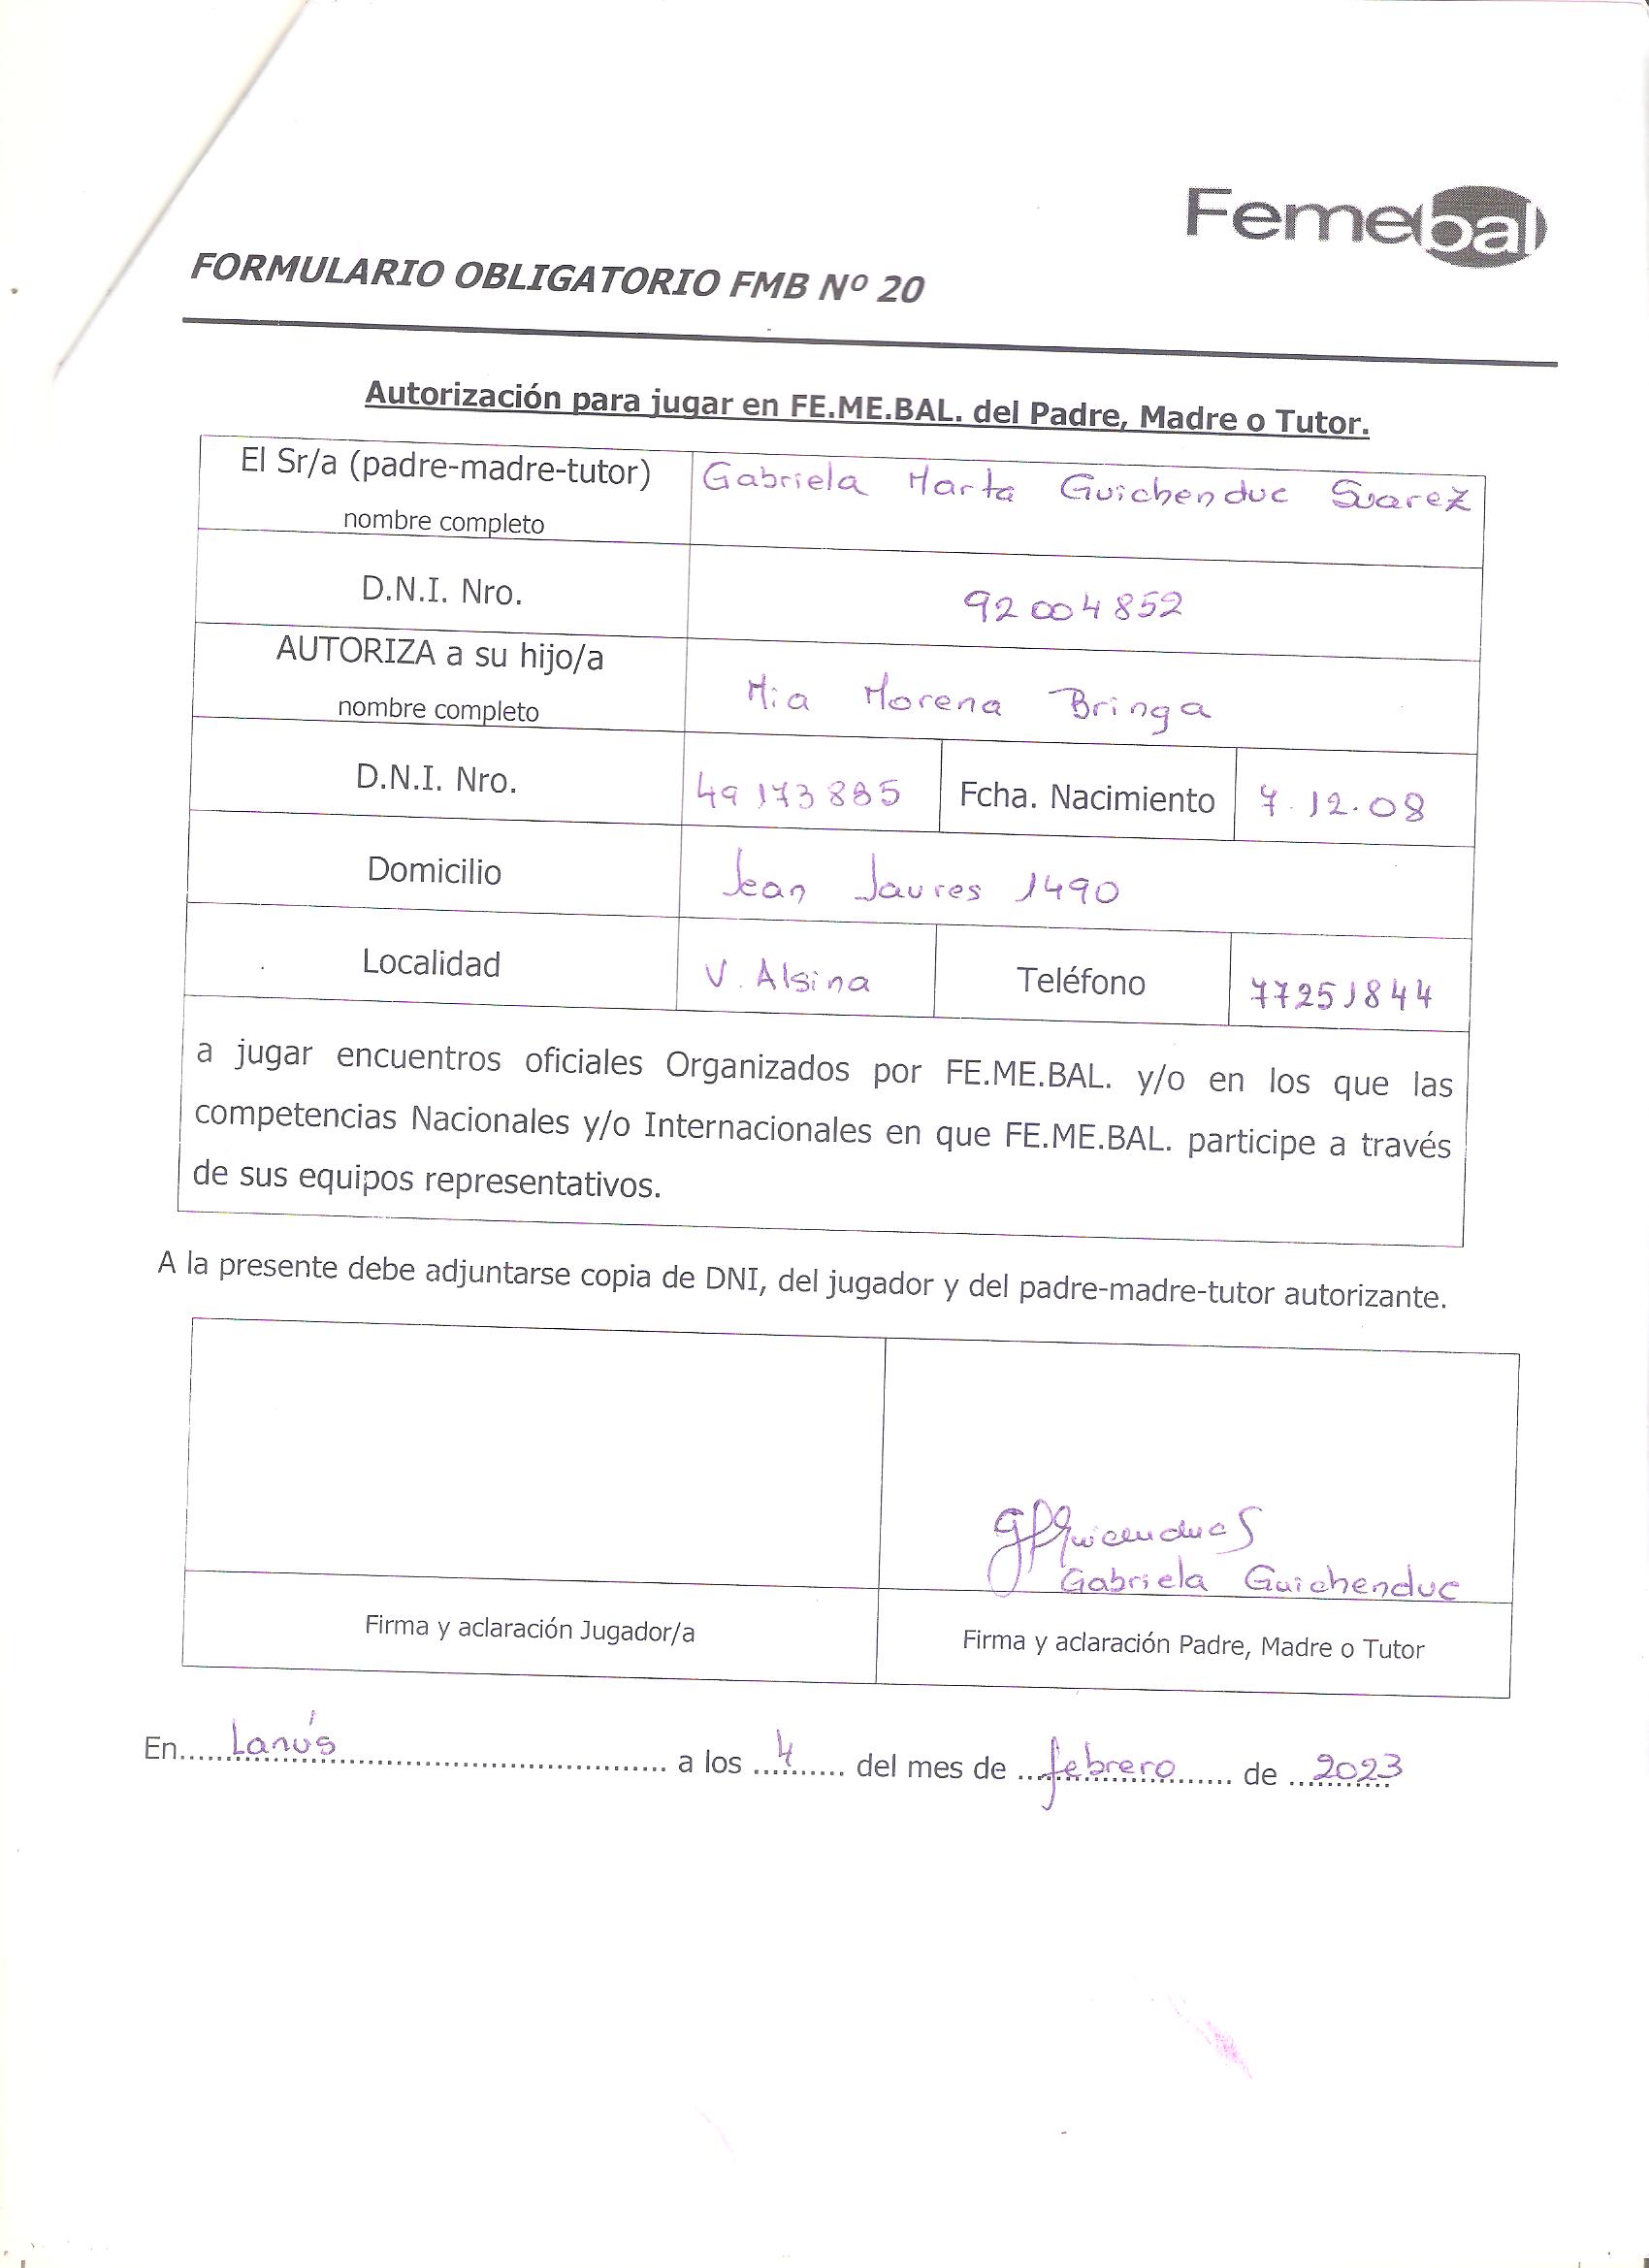 Femebal
FORMULARIO OBLIGATORIO FMB Nº 20
Autorización para jugar en FE.ME.BAL. del Padre, Madre o Tutor.
El Sr/a (padre-madre-tutor) nombre completo Gabriela Marta Guichenduc Suarez
D.N.I. Nro. 92004852
AUTORIZA a su hijo/a nombre completo Mia Morena Bringa
D.N.I. Nro. 49173885 Fcha. Nacimiento 7.12.08
Domicilio Jean Jaures 1490
Localidad V. Alsina Teléfono 77251844
a jugar encuentros oficiales Organizados por FE.ME.BAL. y/o en los que las
competencias Nacionales y/o Internacionales en que FE.ME.BAL. participe a través
de sus equipos representativos.
A la presente debe adjuntarse copia de DNI, del jugador y del padre-madre-tutor autorizante.
Gabriela Guichenduc
Firma y aclaración Jugador/a Firma y aclaración Padre, Madre o Tutor
En Lanús a los 4 del mes de febrero de 2023